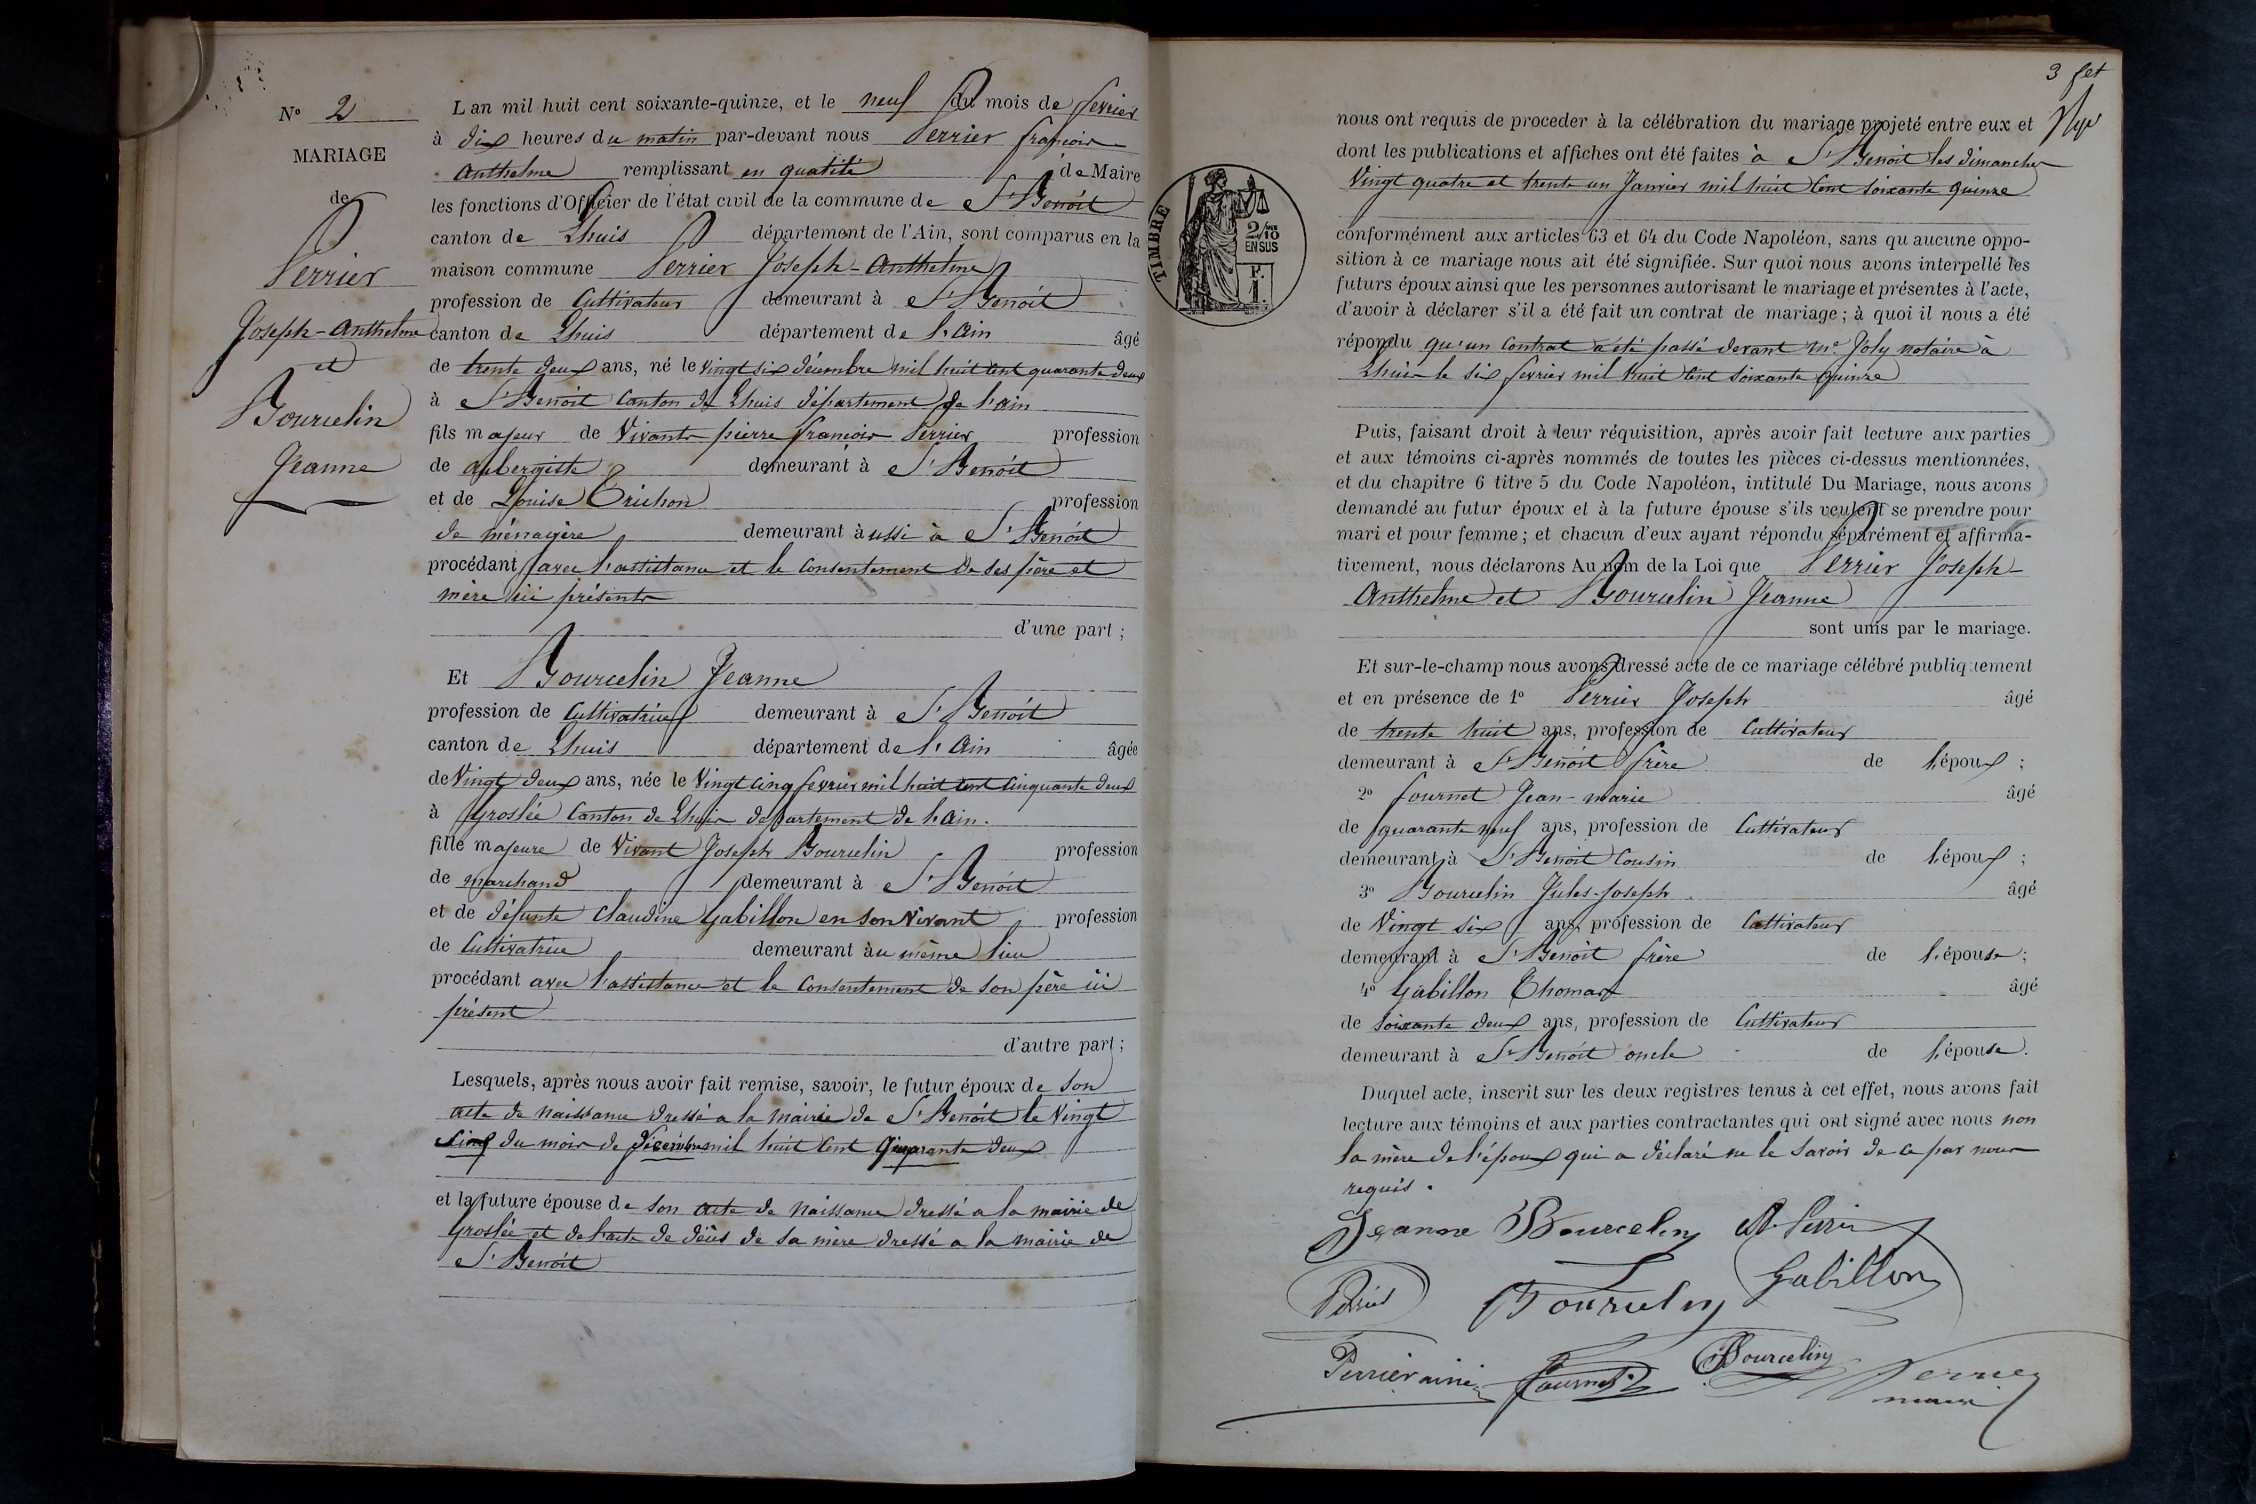 N° 2
MARIAGE
de
Perrier
Joseph-Anthelme
et
Bourcelin
Jeanne
L'an mil huit cent soixante-quinze, et le neuf du mois de fevrier
à dix heures du matin par-devant nous Perrier françois
Anthelme remplissant en qualité de Maire
les fonctions d'Officier de l'état civil de la commune de St Benoit
canton de Lhuis département de l'Ain, sont comparus en la
maison commune Perrier Joseph-Anthelme
profession de Cultivateur demeurant à St Benoît
canton de Lhuis département de l'ain âgé
de trente deux ans, né le vingt six décembre mil huit cent quarante deux
à St Benoit Canton de Lhuis département de l'ain
fils majeur de Vivants pierre françois Perrier profession
de aubergiste demeurant à St Benoît
et de Louise Trichon profession
de ménagère demeurant aussi à St Benoît
procédant avec l'assistance et le consentement de ses père et
mère ici présents
d'une part ;
Et Bourcelin Jeanne
profession de Cultivatrice demeurant à St Benoît
canton de Lhuis département de l'Ain âgée
de Vingt deux ans, née le Vingt cinq fevrier mil huit cent cinquante deux
à Groslée Canton de Lhuis département de l'ain.
fille majeure de Vivant Joseph Bourcelin profession
de marchand demeurant à St Benoît
et de défunte Claudine Gabillon en son Vivant profession
de Cultivatrice demeurant au même lieu
procédant avec l'assistance et le consentement de son père ici
présent
d'autre part ;
Lesquels, après nous avoir fait remise, savoir, le futur époux de son
acte de naissance dressé a la mairie de St Benoît le Vingt
cinq du mois de décembre mil huit cent quarante deux
et la future épouse de son acte de Naissance dressé a la mairie de
Groslée et de l'acte de décès de sa mère dressé a la mairie de
St Benoît
3 fet
TIMBRE
2/10
EN SUS
nous ont requis de proceder à la célébration du mariage projeté entre eux et
dont les publications et affiches ont été faites à St Benoit les dimanches
Vingt quatre et trente un Janvier mil huit Cent soixante quinze
conformément aux articles 63 et 64 du Code Napoléon, sans qu'aucune oppo-
sition à ce mariage nous ait été signifiée. Sur quoi nous avons interpellé les
futurs époux ainsi que les personnes autorisant le mariage et présentes à l'acte,
d'avoir à déclarer s'il a été fait un contrat de mariage ; à quoi il nous a été
répondu qu'un Contrat a été passé devant Me Joly notaire à
Lhuis le six fevrier mil huit Cent soixante quinze
Puis, faisant droit à leur réquisition, après avoir fait lecture aux parties
et aux témoins ci-après nommés de toutes les pièces ci-dessus mentionnées,
et du chapitre 6 titre 5 du Code Napoléon, intitulé Du Mariage, nous avons
demandé au futur époux et à la future épouse s'ils veulent se prendre pour
mari et pour femme ; et chacun d'eux ayant répondu séparément et affirma-
tivement, nous déclarons Au nom de la Loi que Perrier Joseph-
Anthelme et Bourcelin Jeanne
sont unis par le mariage.
Et sur-le-champ nous avons dressé acte de ce mariage célébré publiquement
et en présence de 1° Perrier Joseph âgé
de trente huit ans, profession de Cultivateur
demeurant à St Benoît frère de l'époux ;
2° fournet Jean-marie âgé
de quarante neuf ans, profession de Cultivateur
demeurant à St Benoît Cousin de l'époux ;
3° Bourcelin Jules-Joseph âgé
de Vingt six ans, profession de Cultivateur
demeurant à St Benoît frère de l'épouse ;
4° Gabillon Thomas âgé
de soixante deux ans, profession de Cultivateur
demeurant à St Benoît oncle de l'épouse.
Duquel acte, inscrit sur les deux registres tenus à cet effet, nous avons fait
lecture aux témoins et aux parties contractantes qui ont signé avec nous non
la mère de l'époux qui a déclaré ne le savoir de ce par nous
requis.
Jeanne Bourcelin A Perrier
Perrier Bourcelin Gabillon
Perrier ainé Fournet Bourcelin Perrier
maire